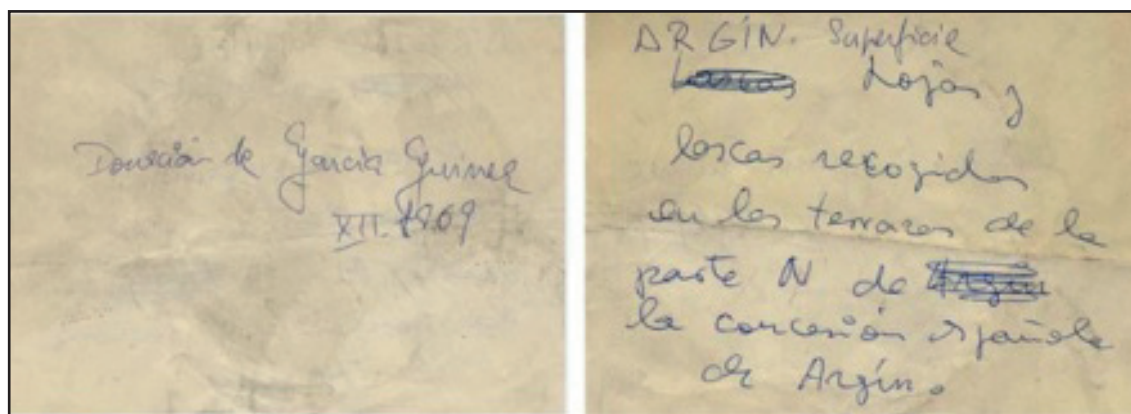 Donación de García Guinea
XII. 1969
ARGÍN. Superficie
Lascas Hojas y
lascas recogidas
en las terrazas de la
parte N de Argín
la concesión española
de Argín.